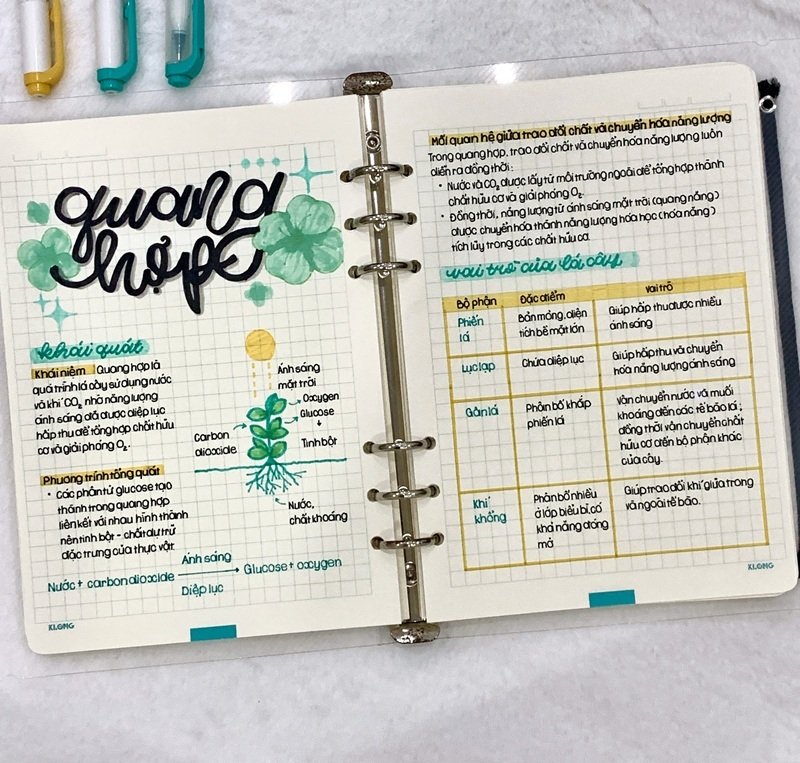 quang
hợp
khái quát
Khái niệm Quang hợp là
quá trình lá cây sử dụng nước
và khí CO₂ nhờ năng lượng
ánh sáng đã được diệp lục
hấp thu để tổng hợp chất hữu
cơ và giải phóng O₂.
Phương trình tổng quát
• Các phân tử glucose tạo
thành trong quang hợp
liên kết với nhau hình thành
nên tinh bột - chất dự trữ
đặc trưng của thực vật.
Ánh sáng
mặt trời
Oxygen
Glucose
Tinh bột
Carbon
dioxide
Nước,
chất khoáng
Ánh sáng
Nước + carbon dioxide → Glucose + oxygen
Diệp lục
KLONG
Mối quan hệ giữa trao đổi chất và chuyển hóa năng lượng
Trong quang hợp, trao đổi chất và chuyển hóa năng lượng luôn
diễn ra đồng thời :
• Nước và CO₂ được lấy từ môi trường ngoài để tổng hợp thành
chất hữu cơ và giải phóng O₂.
• Đồng thời, năng lượng từ ánh sáng mặt trời (quang năng)
được chuyển hóa thành năng lượng hóa học (hóa năng)
tích lũy trong các chất hữu cơ.
vai trò của lá cây
Bộ phận Đặc điểm Vai trò
Phiến
lá
Bản mỏng, diện
tích bề mặt lớn
Giúp hấp thu được nhiều
ánh sáng
Lục lạp
Chứa diệp lục
Giúp hấp thu và chuyển
hóa năng lượng ánh sáng
Gân lá
Phân bố khắp
phiến lá
Vận chuyển nước và muối
khoáng đến các tế bào lá ;
đồng thời vận chuyển chất
hữu cơ đến bộ phận khác
của cây.
Khí
khổng
Phân bố nhiều
ở lớp biểu bì, có
khả năng đóng
mở
Giúp trao đổi khí giữa trong
và ngoài tế bào.
KLONG